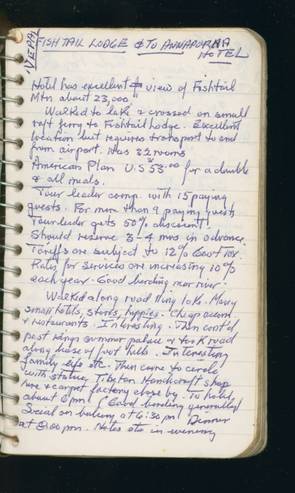 NEPAL
FISH TAIL LODGE & TO ANNAPURNA
HOTEL
Hotel has excellent view of Fishtail
Mtn about 23,000
Walked to lake & crossed on small
raft ferry to Fishtail Lodge. Excellent
location but requires transport to and
from airport. Has 32 rooms
American Plan U.S 53.00 for a double
& all meals.
Tour leader comp. with 15 paying
guests. For more than 9 paying guests
Tour leader gets 50% discount.
Should reserve 3-4 mos in advance.
Tariffs are subject to 12% Govt
Rates for services are increasing 10%
each year. Good birding near river.
Walked along road thing 10K. Many
small hotels, stores, hippies. Cheap accom
& restaurants. Interesting. Then cont'd
past Kings summer palace & took road
along base of foot hills. Interesting
family life etc. Then came to circle
with statue, Tibetan Handicraft shop
here & carpet factory close by. To hotel
about 6pm. (Good birding generally)
Social on balcony at 6:30 pm Dinner
at 8:00 pm. Notes etc in evening